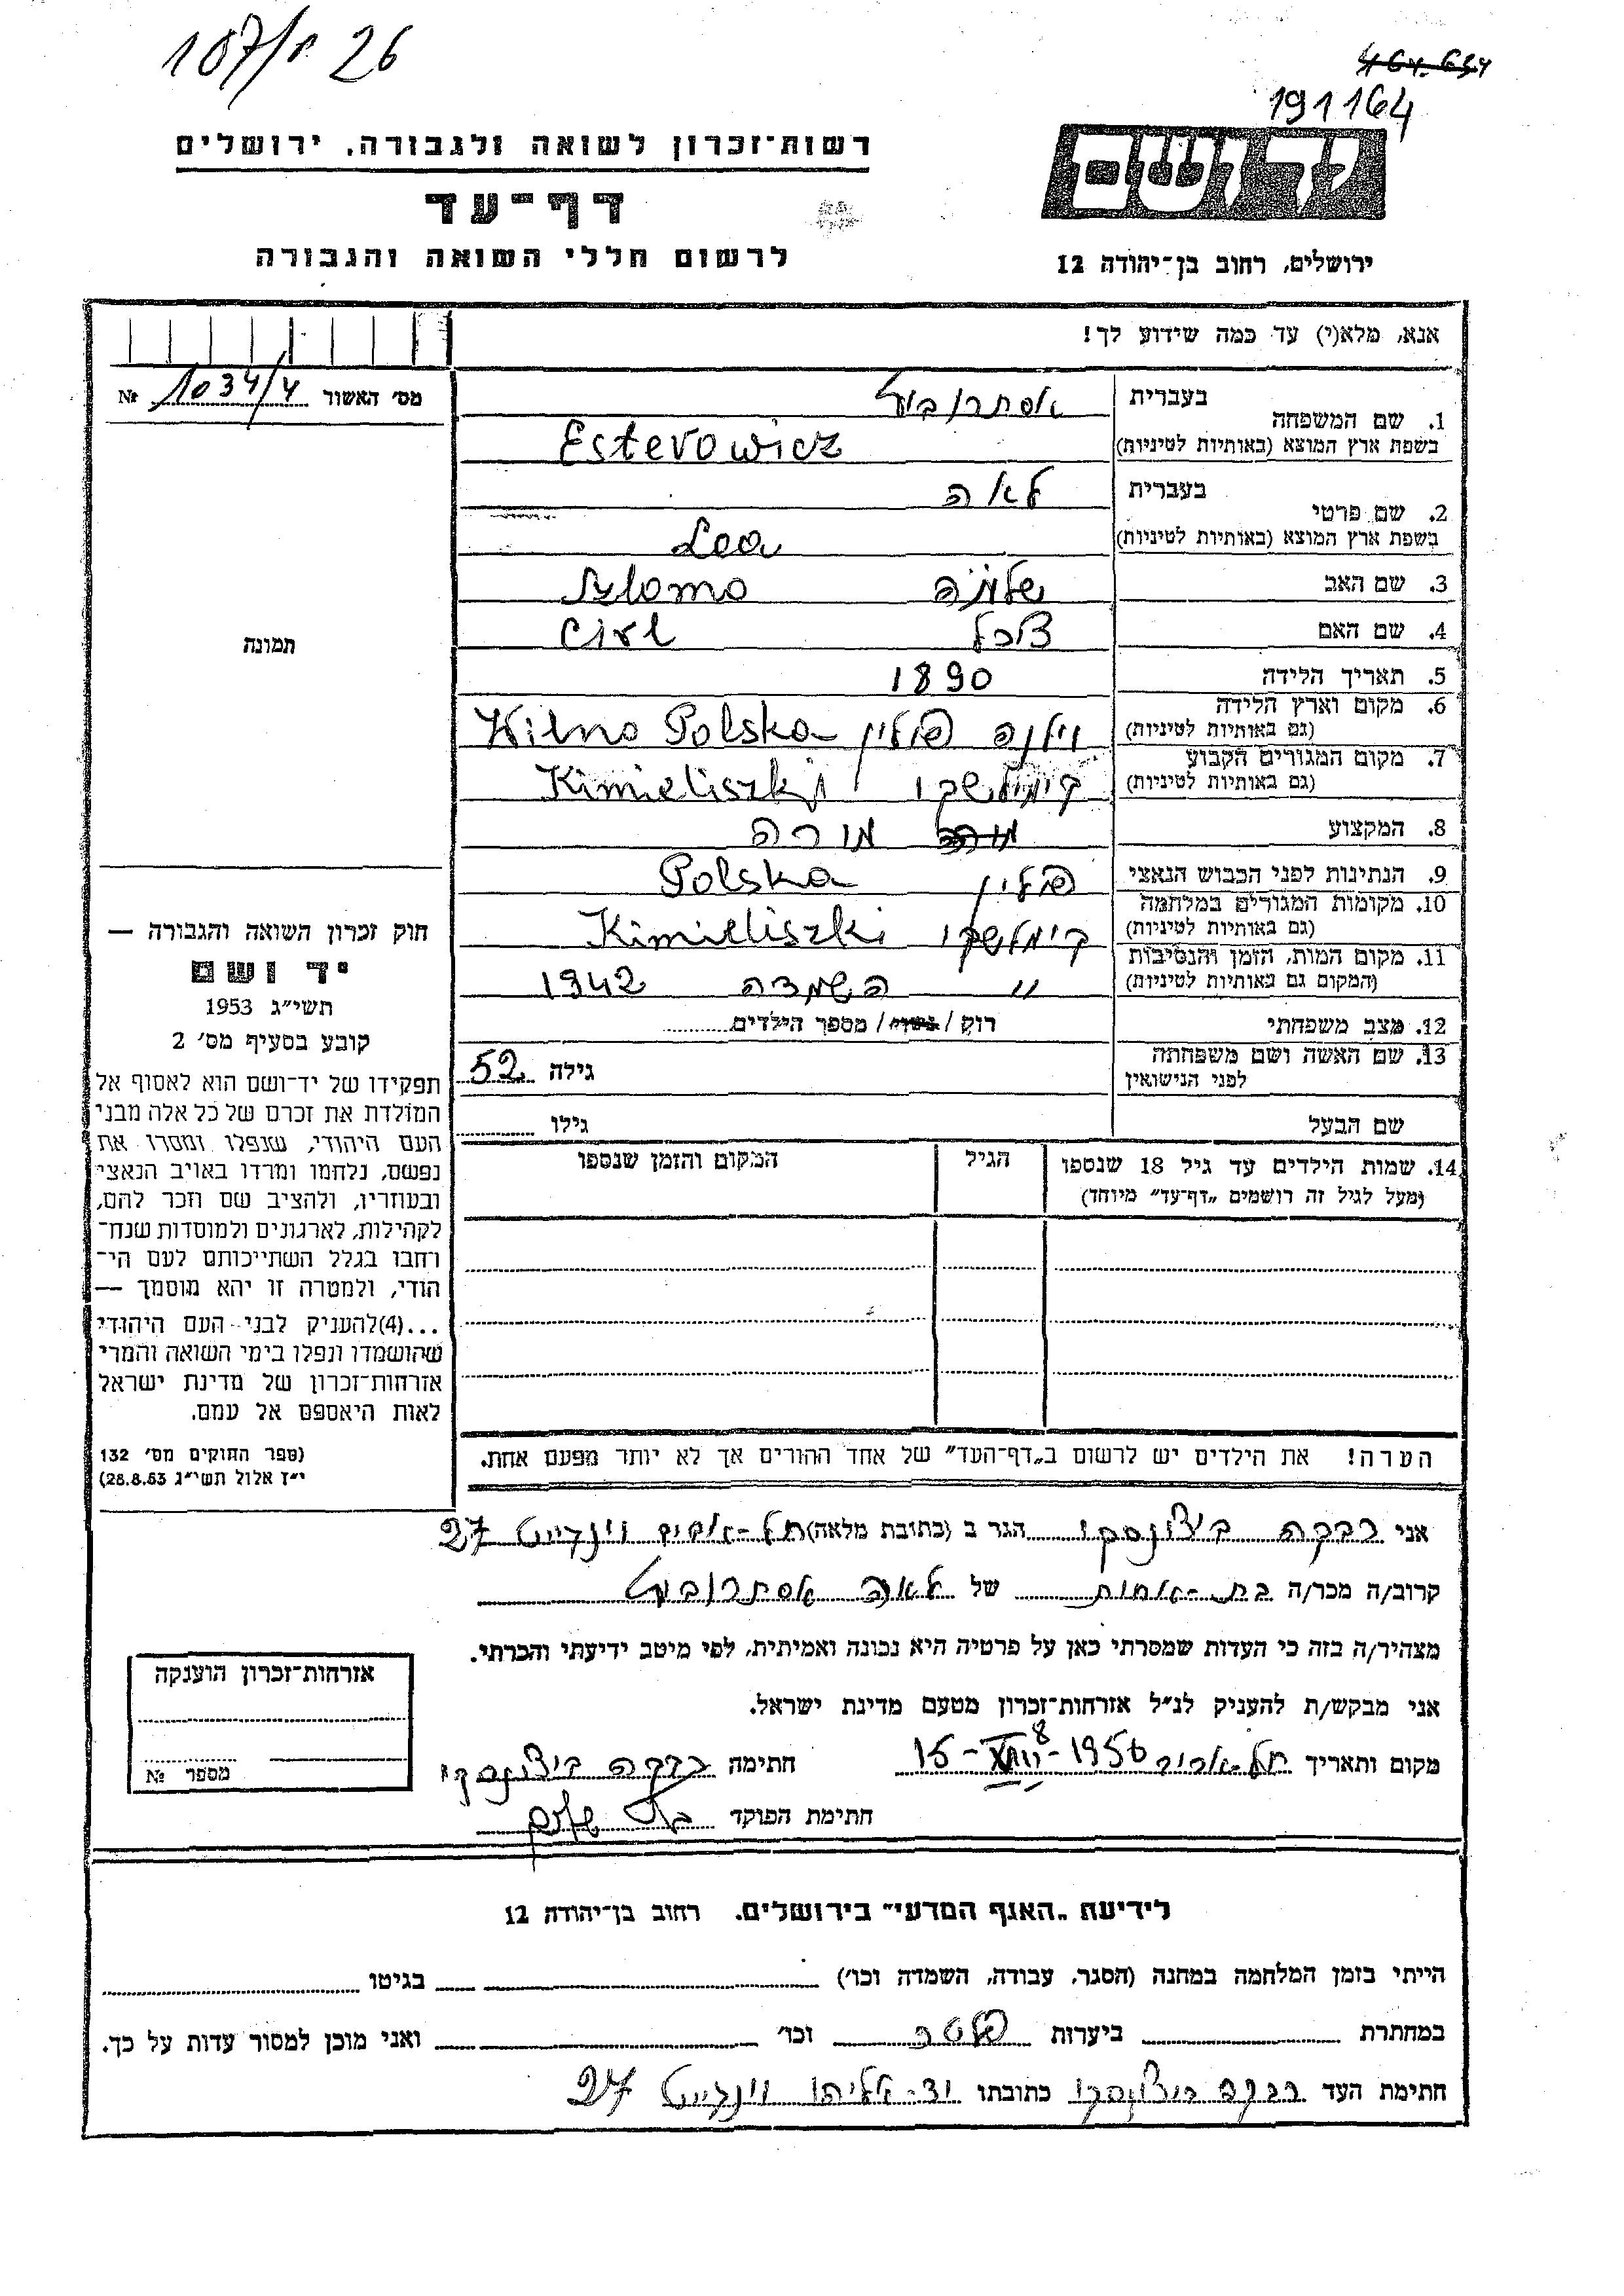 107/ 26
191164
רשות־זכרון לשואה ולגבורה, ירושלים
דף־עד
לרשום חללי השואה והגבורה
יד ושם
ירושלים, רחוב בן־יהודה 12
אנא, מלא(י) עד כמה שידוע לך!
מס׳ האשור 1034/4 №
1. שם המשפחה בעברית
בשפת ארץ המוצא (באותיות לטיניות) Esterowicz
2. שם פרטי בעברית לאה
בשפת ארץ המוצא (באותיות לטיניות) Lea
3. שם האב שלמה Szlomo
4. שם האם Cirl
5. תאריך הלידה 1890
6. מקום וארץ הלידה (גם באותיות לטיניות) וילנה פולין Wilno Polska
7. מקום המגורים הקבוע (גם באותיות לטיניות) Kimieliszki
8. המקצוע מורה
9. הנתינות לפני הכבוש הנאצי פולין Polska
10. מקומות המגורים במלחמה (גם באותיות לטיניות) Kimieliszki
11. מקום המות, הזמן והנסיבות (המקום גם באותיות לטיניות) " השמדה 1942
12. מצב משפחתי רוק / נשוי / מספר הילדים
13. שם האשה ושם משפחתה לפני הנישואין גילה 52
שם הבעל גילו
14. שמות הילדים עד גיל 18 שנספו הגיל המקום והזמן שנספו
(מעל לגיל זה רושמים „דף־עד״ מיוחד)
תמונה
חוק זכרון השואה והגבורה —
יד ושם
תשי״ג 1953
קובע בסעיף מס׳ 2
תפקידו של יד־ושם הוא לאסוף אל
המולדת את זכרם של כל אלה מבני
העם היהודי, שנפלו ומסרו את
נפשם, נלחמו ומרדו באויב הנאצי
ובעוזריו, ולהציב שם וזכר להם,
לקהילות, לארגונים ולמוסדות שנח־
רחבו בגלל השתייכותם לעם הי־
הודי, ולמטרה זו יהא מוסמך —
...(4)להעניק לבני העם היהודי
שהושמדו ונפלו בימי השואה והמרי
אזרחות־זכרון של מדינת ישראל
לאות היאספם אל עמם.
(ספר החוקים מס׳ 132
י״ז אלול תשי״ג 28.8.53)
הערה! את הילדים יש לרשום ב„דף־העד״ של אחד ההורים אך לא יותר מפעם אחת.
אני רבקה הגר ב (כתובת מלאה) תל-אביב 27
קרוב/ה מכר/ה בת-אחות של לאה
מצהיר/ה בזה כי העדות שמסרתי כאן על פרטיה היא נכונה ואמיתית, לפי מיטב ידיעתי והכרתי.
אני מבקש/ת להעניק לנ״ל אזרחות־זכרון מטעם מדינת ישראל.
מקום ותאריך תל-אביב 15-8-1956 חתימה רבקה
חתימת הפוקד
אזרחות־זכרון הוענקה
מספר №
לידיעת „האגף המדעי״ בירושלים. רחוב בן־יהודה 12
הייתי בזמן המלחמה במחנה (הסגר, עבודה, השמדה וכו׳) בגיטו
במחתרת ביערות וכו׳ ואני מוכן למסור עדות על כך.
חתימת העד רבקה כתובתו 27